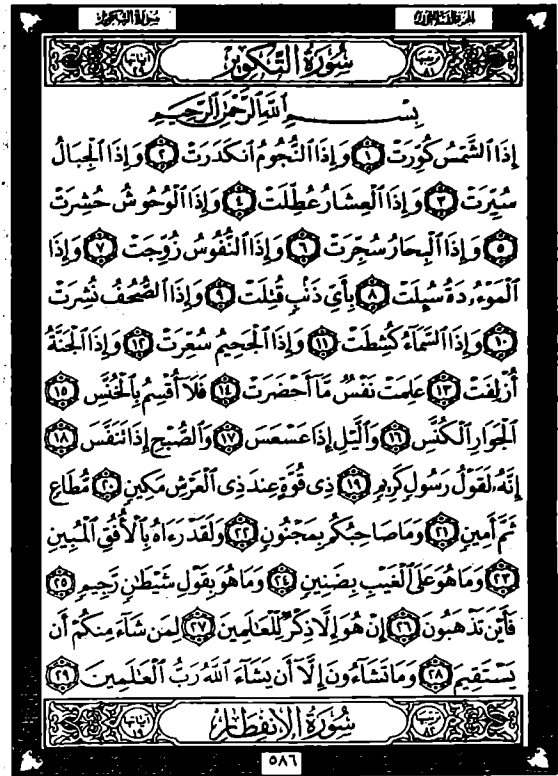 سورة التكوير الجزء الثلاثون
آياتها ٢٩ سُورَةُ التَّكْوِيرِ ترتيبها ٨١
بِسْمِ اللَّهِ الرَّحْمَٰنِ الرَّحِيمِ
إِذَا الشَّمْسُ كُوِّرَتْ ١ وَإِذَا النُّجُومُ انكَدَرَتْ ٢ وَإِذَا الْجِبَالُ
سُيِّرَتْ ٣ وَإِذَا الْعِشَارُ عُطِّلَتْ ٤ وَإِذَا الْوُحُوشُ حُشِرَتْ
٥ وَإِذَا الْبِحَارُ سُجِّرَتْ ٦ وَإِذَا النُّفُوسُ زُوِّجَتْ ٧ وَإِذَا
الْمَوْءُۥدَةُ سُئِلَتْ ٨ بِأَيِّ ذَنبٍ قُتِلَتْ ٩ وَإِذَا الصُّحُفُ نُشِرَتْ
١٠ وَإِذَا السَّمَاءُ كُشِطَتْ ١١ وَإِذَا الْجَحِيمُ سُعِّرَتْ ١٢ وَإِذَا الْجَنَّةُ
أُزْلِفَتْ ١٣ عَلِمَتْ نَفْسٌ مَّا أَحْضَرَتْ ١٤ فَلَا أُقْسِمُ بِالْخُنَّسِ ١٥
الْجَوَارِ الْكُنَّسِ ١٦ وَاللَّيْلِ إِذَا عَسْعَسَ ١٧ وَالصُّبْحِ إِذَا تَنَفَّسَ ١٨
إِنَّهُۥ لَقَوْلُ رَسُولٍ كَرِيمٍ ١٩ ذِي قُوَّةٍ عِندَ ذِي الْعَرْشِ مَكِينٍ ٢٠ مُّطَاعٍ
ثَمَّ أَمِينٍ ٢١ وَمَا صَاحِبُكُم بِمَجْنُونٍ ٢٢ وَلَقَدْ رَءَاهُ بِالْأُفُقِ الْمُبِينِ
٢٣ وَمَا هُوَ عَلَى الْغَيْبِ بِضَنِينٍ ٢٤ وَمَا هُوَ بِقَوْلِ شَيْطَٰنٍ رَّجِيمٍ ٢٥
فَأَيْنَ تَذْهَبُونَ ٢٦ إِنْ هُوَ إِلَّا ذِكْرٌ لِّلْعَالَمِينَ ٢٧ لِمَن شَاءَ مِنكُمْ أَن
يَسْتَقِيمَ ٢٨ وَمَا تَشَاءُونَ إِلَّا أَن يَشَاءَ اللَّهُ رَبُّ الْعَٰلَمِينَ ٢٩
آياتها ١٩ سُورَةُ الْانفِطَارِ ترتيبها ٨٢
٥٨٦